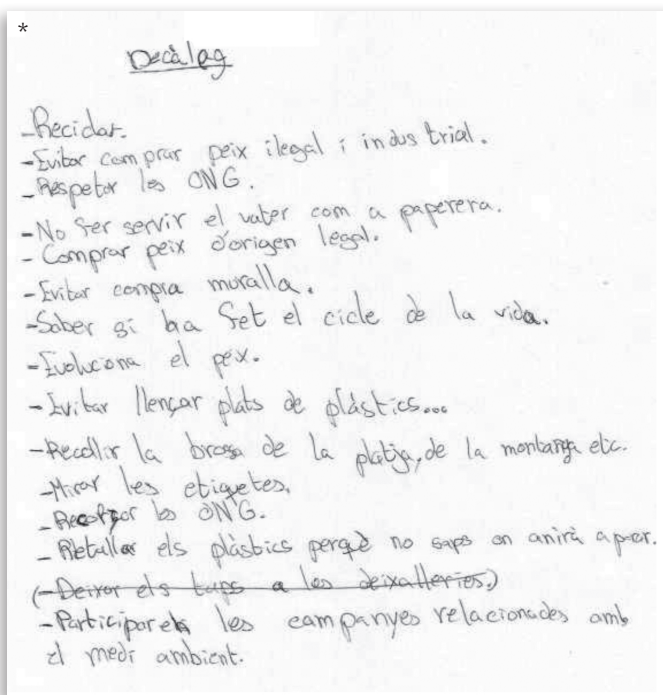 *
Decàlog
-Reciclar.
-Evitar comprar peix ilegal i industrial.
-Respetar les ONG.
-No fer servir el vater com a paperera.
- Comprar peix d'origen legal.
-Evitar compra muralla.
-Saber si ha fet el cicle de la vida.
-Evoluciona el peix.
- Evitar llençar plats de plástics...
-Recollir la brosa de la platja, de la etic.
-Mirar les etiquetes.
- les ONG.
- Retallar els plàstics perquè no saps on anirà a parar.
(-Deixar els taps a les deixalleries.)
-Participar les campanyes relacionades amb
el medi ambient.